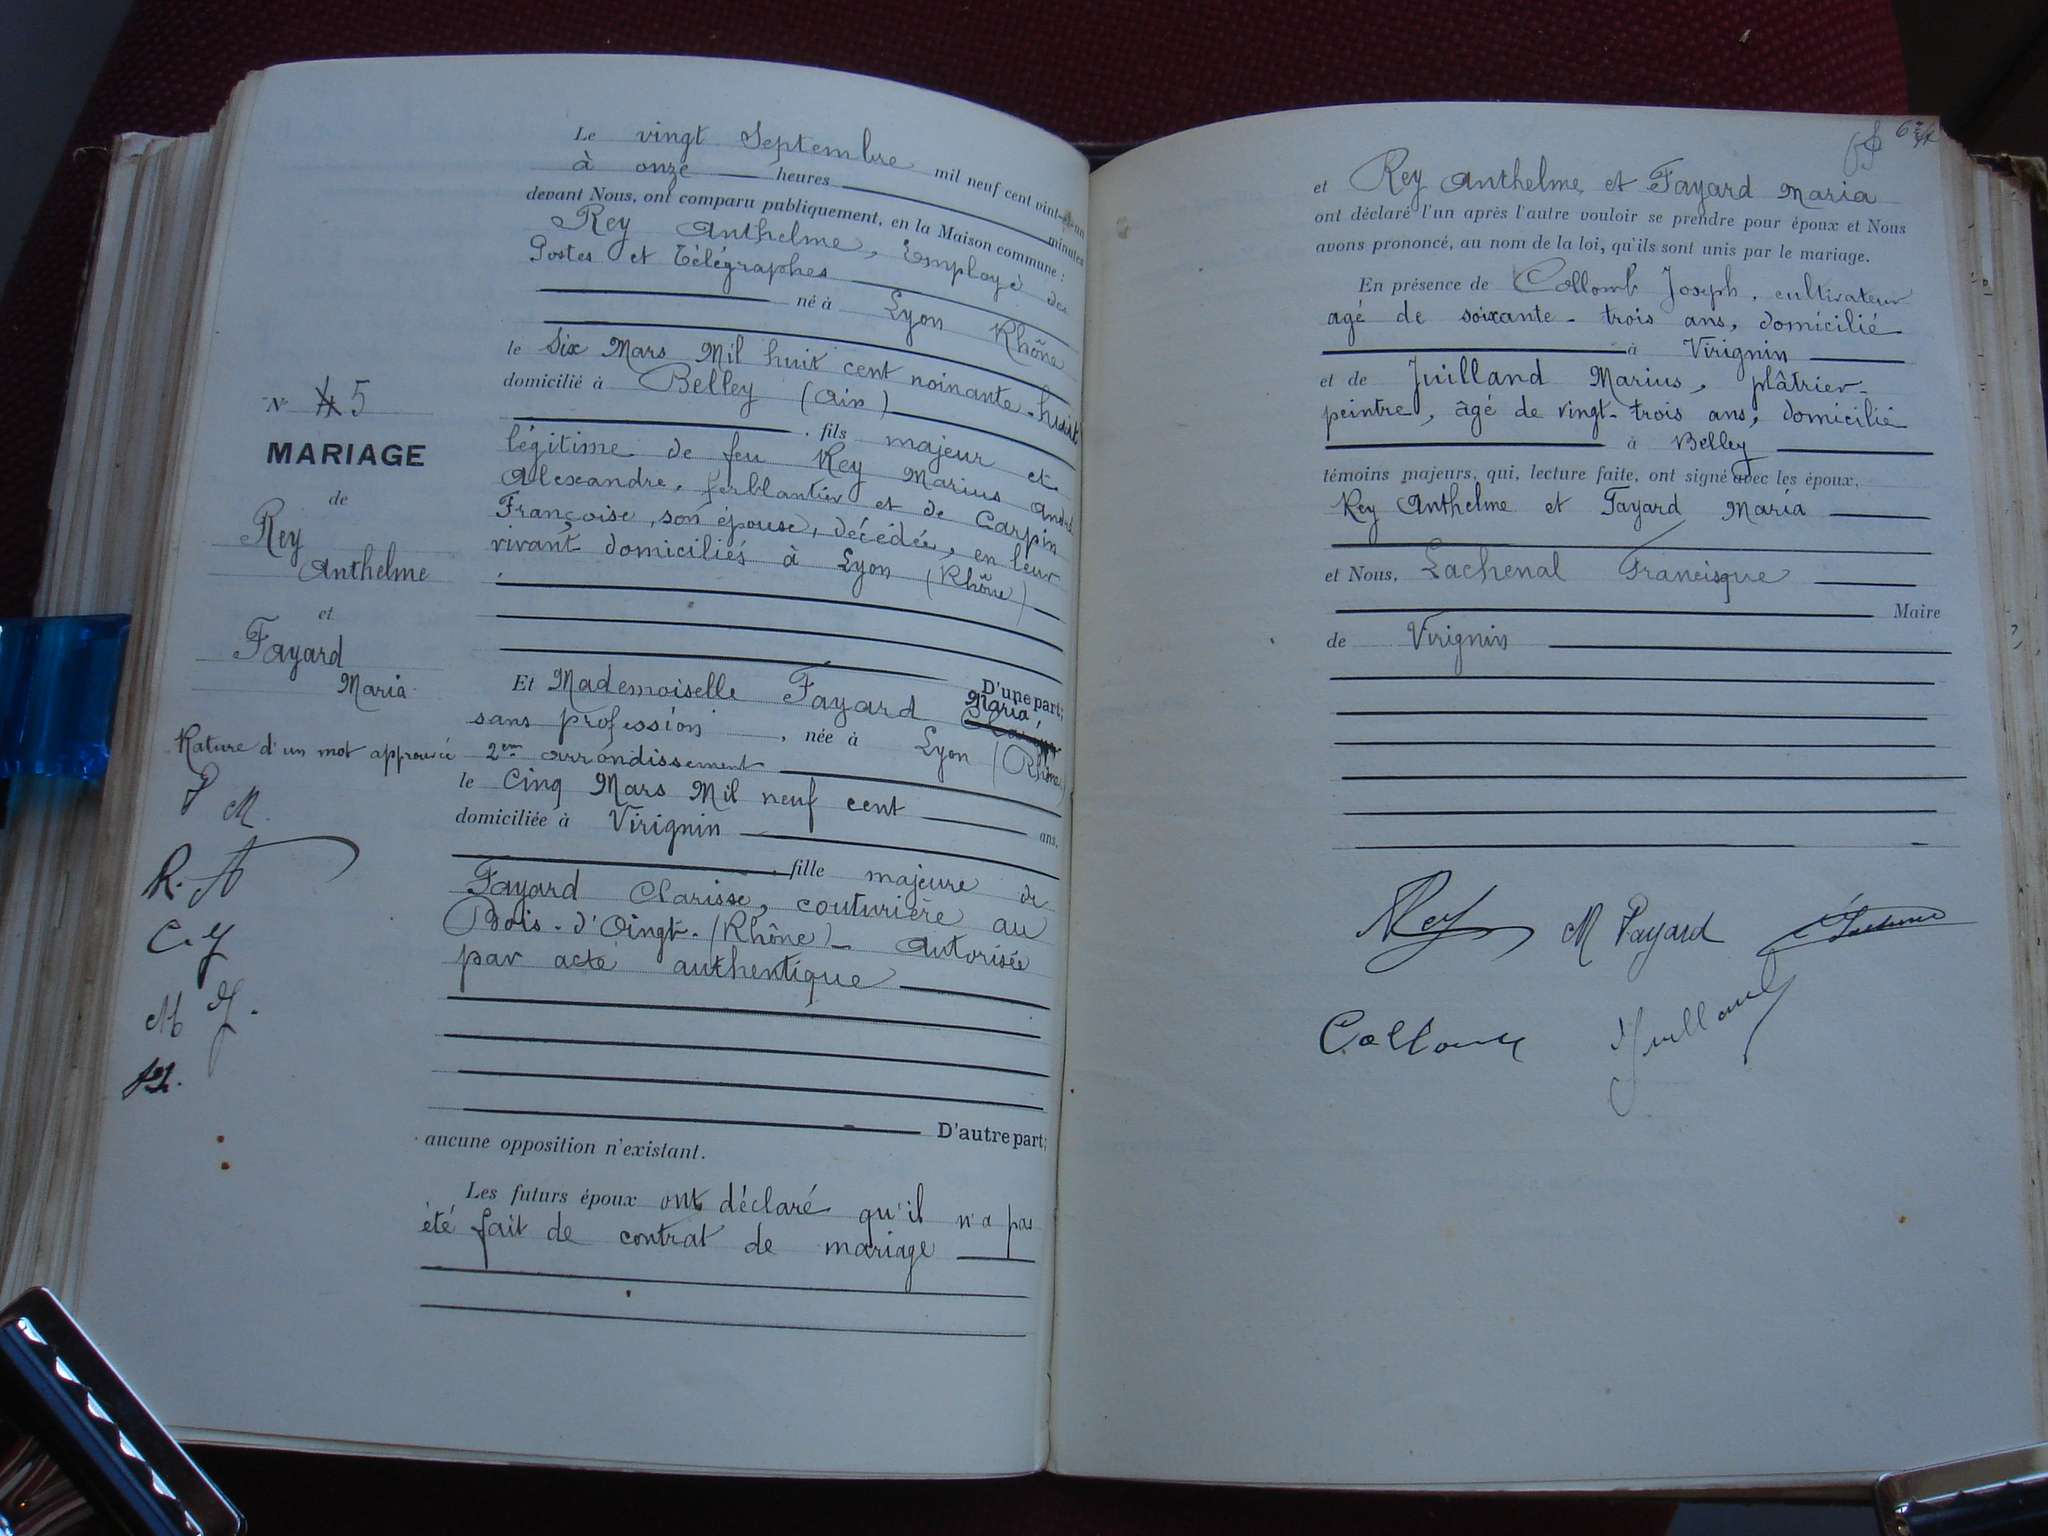 Le vingt Septembre mil neuf cent vint-et-un
à onze heures minutes
devant Nous, ont comparu publiquement, en la Maison commune :
Rey Anthelme, Employé des
Postes et Télégraphes
né à Lyon Rhône
le Six Mars Mil huit cent noinante-huit
domicilié à Belley (Ain)
, fils majeur et
légitime de feu Rey Marius André
Alexandre, ferblantier et de Carpin
Françoise, son épouse, décédée, en leur
vivant domiciliés à Lyon (Rhône)
D'une part;
Et Mademoiselle Fayard Maria,
sans profession, née à Lyon (Rhône)
2em arrondissement
le Cinq Mars Mil neuf cent ans.
domiciliée à Virignin
, fille majeure de
Fayard Clarisse, couturière au
Bois-d'Oingt-(Rhône)- Autorisée
par acte authentique
D'autre part;
aucune opposition n'existant.
Les futurs époux ont déclaré qu'il n'a pas
été fait de contrat de mariage
N° 4 5
MARIAGE
de
Rey
Anthelme
et
Fayard
Maria
Rature d'un mot approuvé
F M.
R. A
C. J
M J.
et Rey Anthelme et Fayard Maria
ont déclaré l'un après l'autre vouloir se prendre pour époux et Nous
avons prononcé, au nom de la loi, qu'ils sont unis par le mariage.
En présence de Collomb Joseph, cultivateur
agé de soixante-trois ans, domicilié
à Virignin
et de Juilland Marius, plâtrier-
peintre, âgé de vingt-trois ans, domicilié
à Belley
témoins majeurs, qui, lecture faite, ont signé avec les époux,
Rey Anthelme et Fayard Maria
et Nous, Lachenal Francisque
Maire
de Virignin
Rey M Fayard
Collomb Juilland